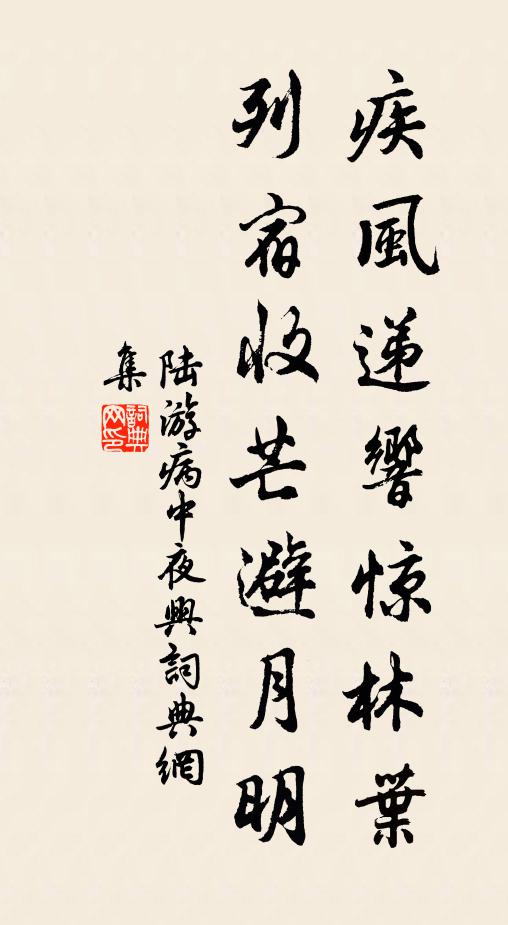 疾風递響惊林葉
列宿收芒避月明
陸游病中夜興詞典網
集
詞典网印